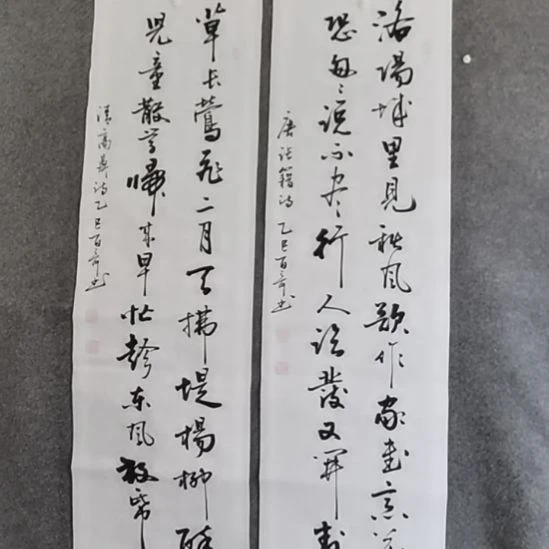 洛陽城里見秋风欲作家書意万
恐匆匆説不尽行人临發又開封
唐张籍诗 乙巳百奇书
草长鶯飛二月天拂堤楊柳醉
児童散学歸来早忙趁东风放帋
清高鼎诗乙巳百奇书